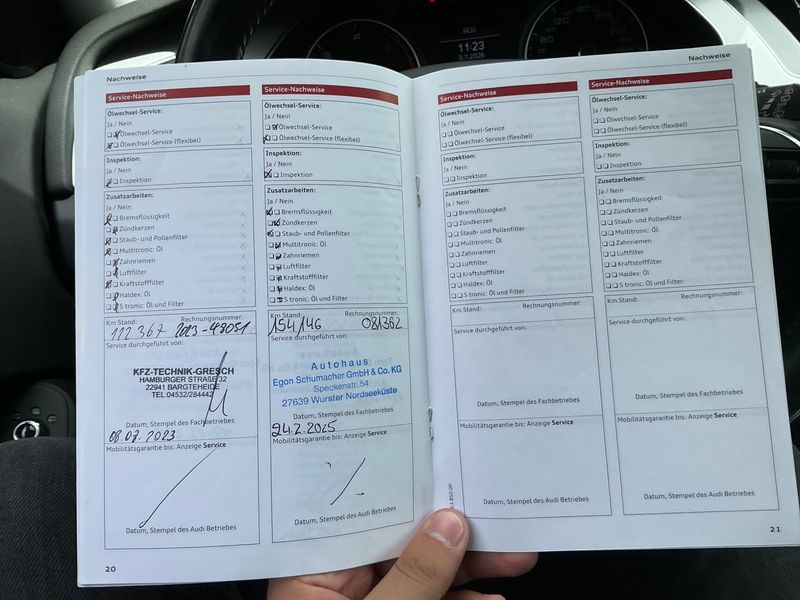 AUX
11:23
3.7.2025
Nachweise
Service-Nachweise
Ölwechsel-Service:
Ja / Nein
Ölwechsel-Service
Ölwechsel-Service (flexibel)
Inspektion:
Ja / Nein
Inspektion
Zusatzarbeiten:
Ja / Nein
Bremsflüssigkeit
Zündkerzen
Staub- und Pollenfilter
Multitronic: Öl
Zahnriemen
Luftfilter
Kraftstofffilter
Haldex: Öl
S tronic: Öl und Filter
Km Stand: Rechnungsnummer:
112 367 2023-43051
Service durchgeführt von:
KFZ-TECHNIK-GRESCH
HAMBURGER STRAßE 32
22941 BARGTEHEIDE
TEL:04532/284442
Datum, Stempel des Fachbetriebes
08.07.2023
Mobilitätsgarantie bis: Anzeige Service
Datum, Stempel des Audi Betriebes
20
Service-Nachweise
Ölwechsel-Service:
Ja / Nein
Ölwechsel-Service
Ölwechsel-Service (flexibel)
Inspektion:
Ja / Nein
Inspektion
Zusatzarbeiten:
Ja / Nein
Bremsflüssigkeit
Zündkerzen
Staub- und Pollenfilter
Multitronic: Öl
Zahnriemen
Luftfilter
Kraftstofffilter
Haldex: Öl
S tronic: Öl und Filter
Km Stand: Rechnungsnummer:
154146 081362
Service durchgeführt von:
Autohaus
Egon Schumacher GmbH & Co. KG
Speckenstr. 54
27639 Wurster Nordseeküste
Datum, Stempel des Fachbetriebes
24.2.2025
Mobilitätsgarantie bis: Anzeige Service
Datum, Stempel des Audi Betriebes
Nachweise
Service-Nachweise
Ölwechsel-Service:
Ja / Nein
Ölwechsel-Service
Ölwechsel-Service (flexibel)
Inspektion:
Ja / Nein
Inspektion
Zusatzarbeiten:
Ja / Nein
Bremsflüssigkeit
Zündkerzen
Staub- und Pollenfilter
Multitronic: Öl
Zahnriemen
Luftfilter
Kraftstofffilter
Haldex: Öl
S tronic: Öl und Filter
Km Stand: Rechnungsnummer:
Service durchgeführt von:
Datum, Stempel des Fachbetriebes
Mobilitätsgarantie bis: Anzeige Service
Datum, Stempel des Audi Betriebes
Service-Nachweise
Ölwechsel-Service:
Ja / Nein
Ölwechsel-Service
Ölwechsel-Service (flexibel)
Inspektion:
Ja / Nein
Inspektion
Zusatzarbeiten:
Ja / Nein
Bremsflüssigkeit
Zündkerzen
Staub- und Pollenfilter
Multitronic: Öl
Zahnriemen
Luftfilter
Kraftstofffilter
Haldex: Öl
S tronic: Öl und Filter
Km Stand: Rechnungsnummer:
Service durchgeführt von:
Datum, Stempel des Fachbetriebes
Mobilitätsgarantie bis: Anzeige Service
Datum, Stempel des Audi Betriebes
21